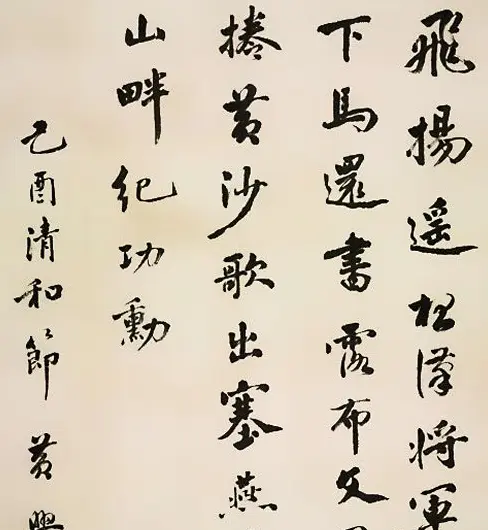 飛揚遥漢將軍
下馬還書露布文
捲黄沙歌出塞燕
山畔紀功勳
乙酉清和節 黄興